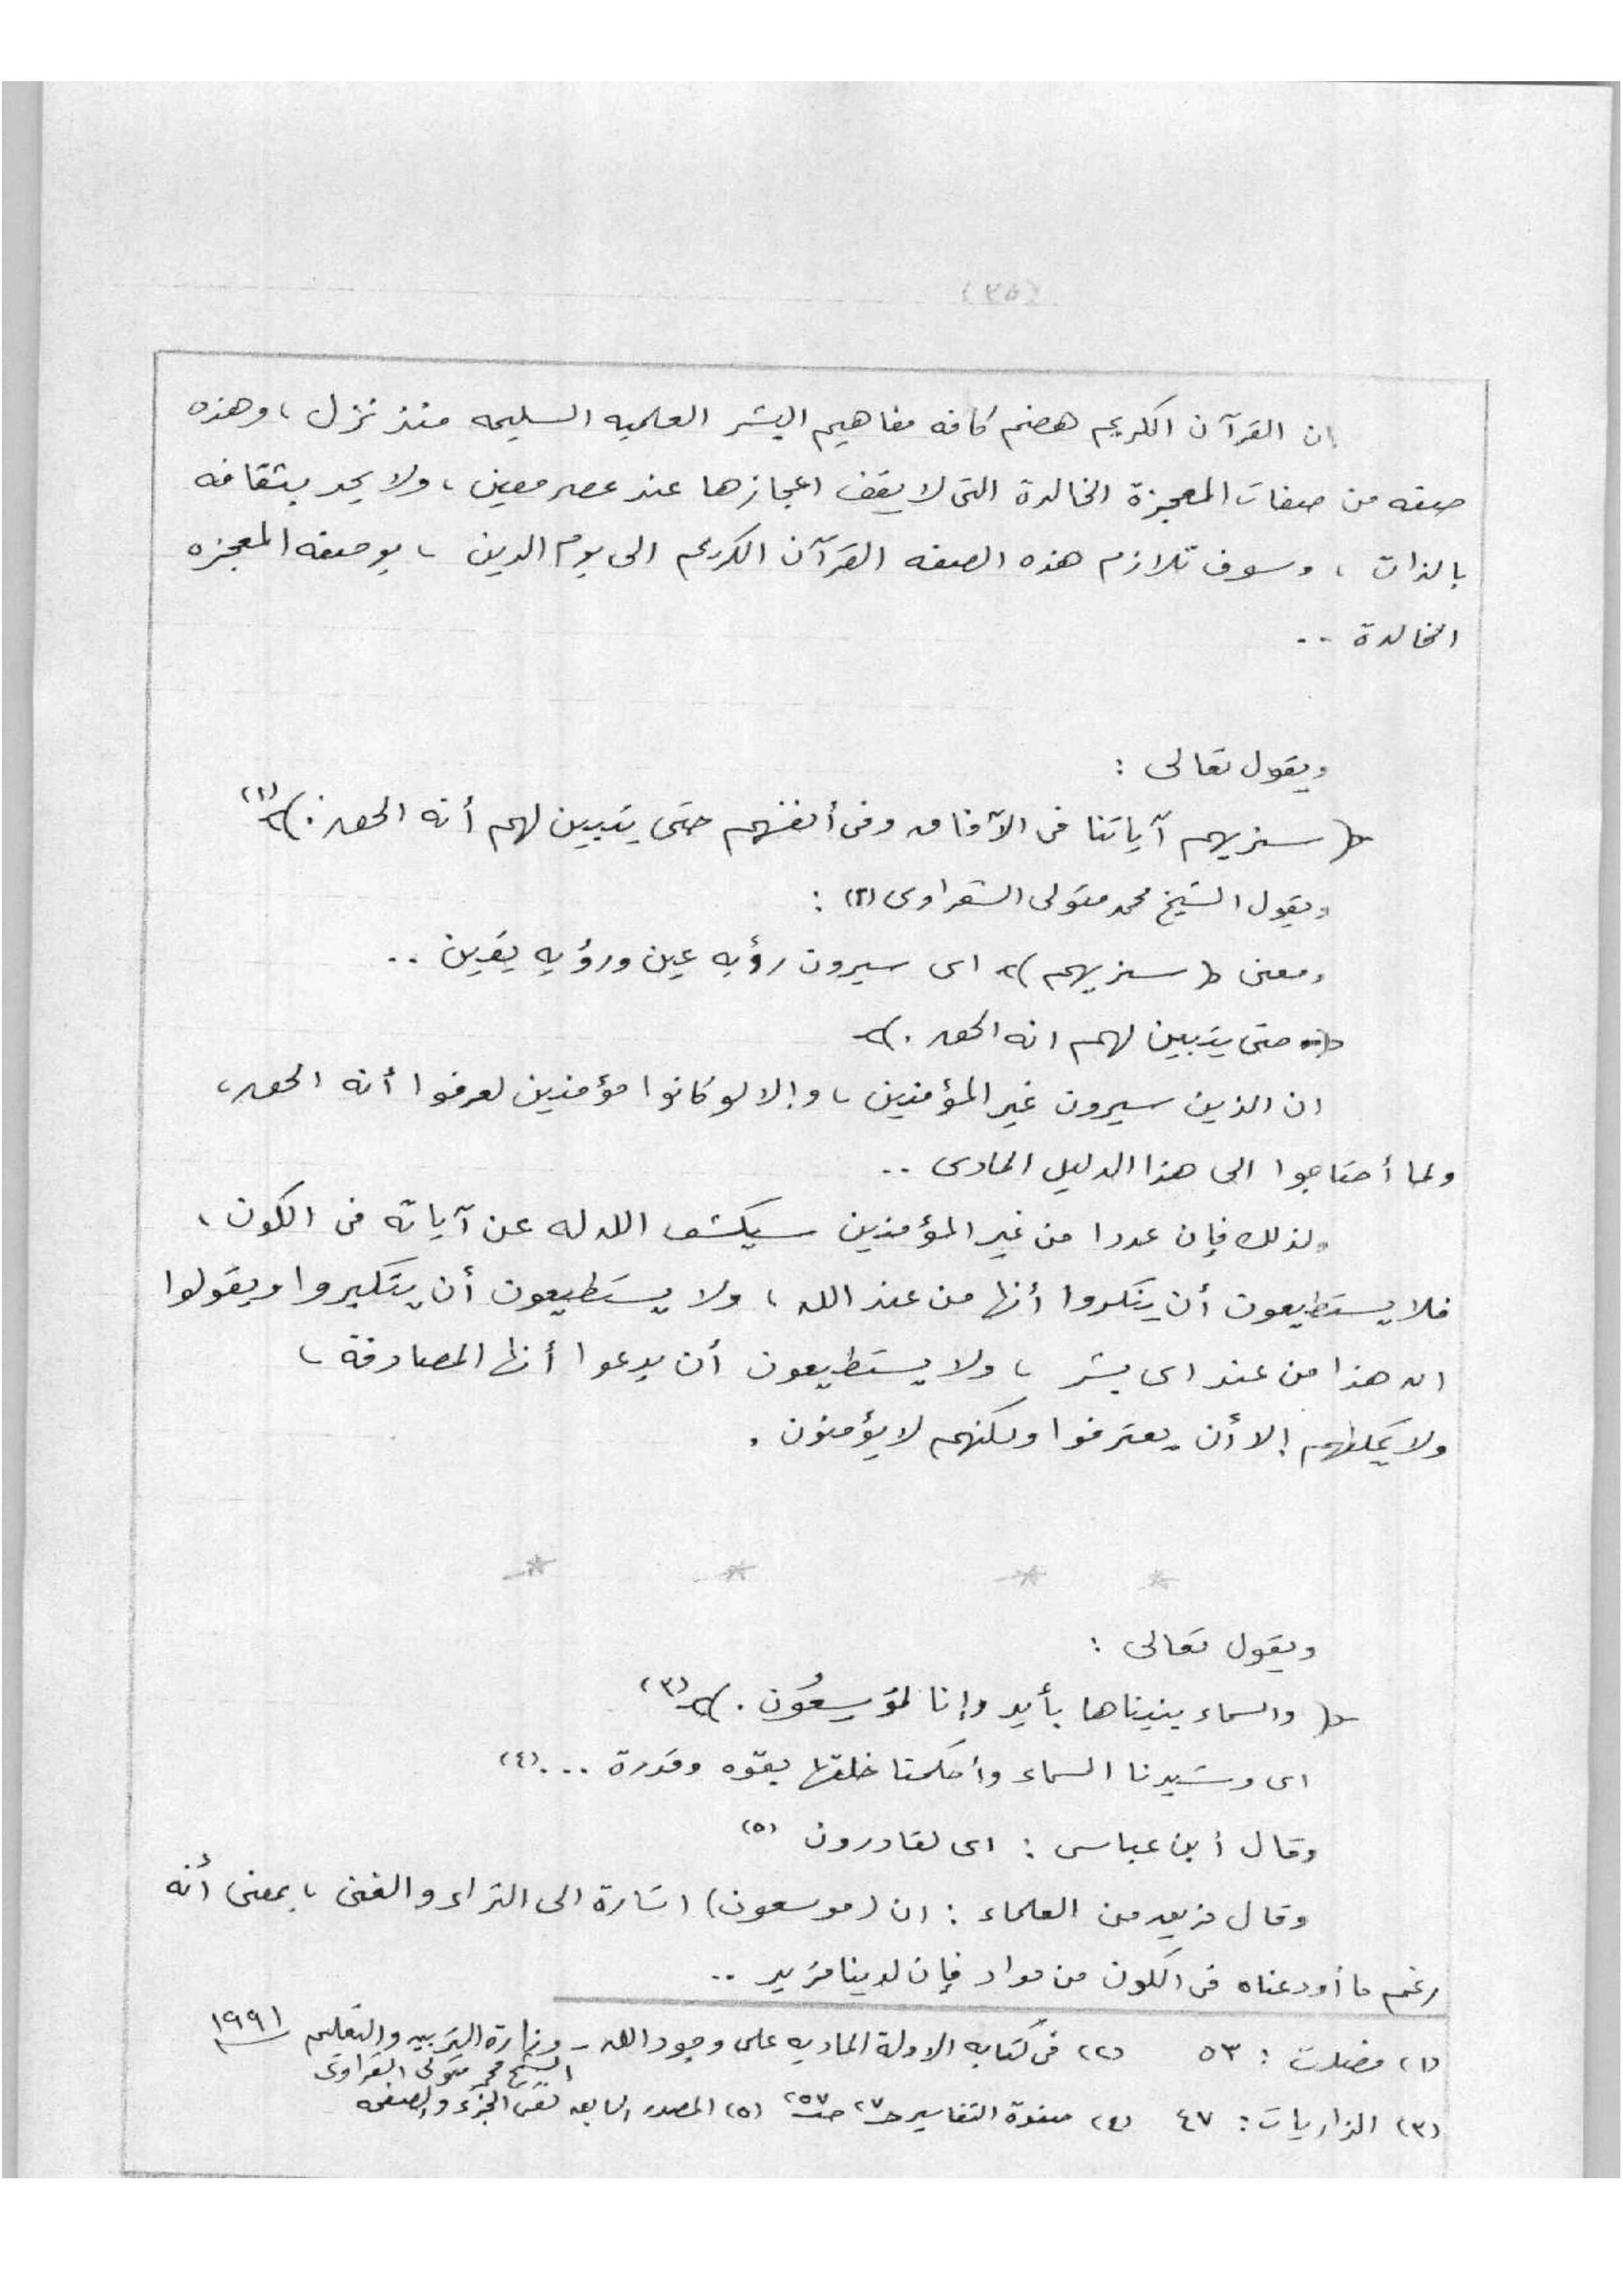 (٣٥)
ان القرآن الكريم هضم كافه مفاهيم البشر العلميه السليمه منذ نزل ، وهذه
صفه من صفات المعجزة الخالدة التى لا يقف اعجازها عند عصر معين ، ولا يحد بثقافه
بالذات ، وسوف تلازم هذه الصفه القرآن الكريم الى يوم الدين ، بوصفه المعجزه
الخالدة ..
ويقول تعالى :
﴿ سنريهم آياتنا فى الآفاق وفى أنفسهم حتى يتبين لهم أنه الحق . ﴾ (١)
ويقول الشيخ محمد متولى الشعراوى (٢) :
ومعنى ﴿ سنريهم ﴾ اى سيرون رؤيه عين ورؤيه يقين ..
﴿ حتى يتبين لهم انه الحق . ﴾
ان الذين سيرون غير المؤمنين ، وإلا لو كانوا مؤمنين لعرفوا أنه الحق ،
ولما أحتاجوا الى هذا الدليل المادى ..
ولذلك فإن عددا من غير المؤمنين سيكشف الله له عن آياته فى الكون ،
فلا يستطيعون أن ينكروا أنها من عند الله ، ولا يستطيعون أن يتكبروا ويقولوا
ان هذا من عند اى بشر ، ولا يستطيعون أن يدعوا أنها المصادفة ،
ولا يملكهم إلا أن يعترفوا ولكنهم لا يؤمنون .
* * * *
ويقول تعالى :
﴿ والسماء بنيناها بأيد وإنا لمؤسِعُون . ﴾ (٣)
اى وشيدنا السماء وأحكمنا خلقها بقوه وقدرة ... (٤)
وقال أبن عباس : اى لقادرون (٥)
وقال فريق من العلماء : ان (موسعون) اشارة الى الثراء والغنى ، بمعنى أنه
رغم ما أودعناه فى الكون من مواد فإن لدينا مزيد ..
(١) فصلت : ٥٣ (٢) فى كتابه الادلة الماديه على وجود الله - وزارة التربيه والتعليم ١٩٩١
الشيخ محمد متولى الشعراوى
(٣) الذاريات : ٤٧ (٤) صفوة التفاسير حـ٢٧ صـ٢٥٧ (٥) المصدر السابق نفس الجزء والصفحه